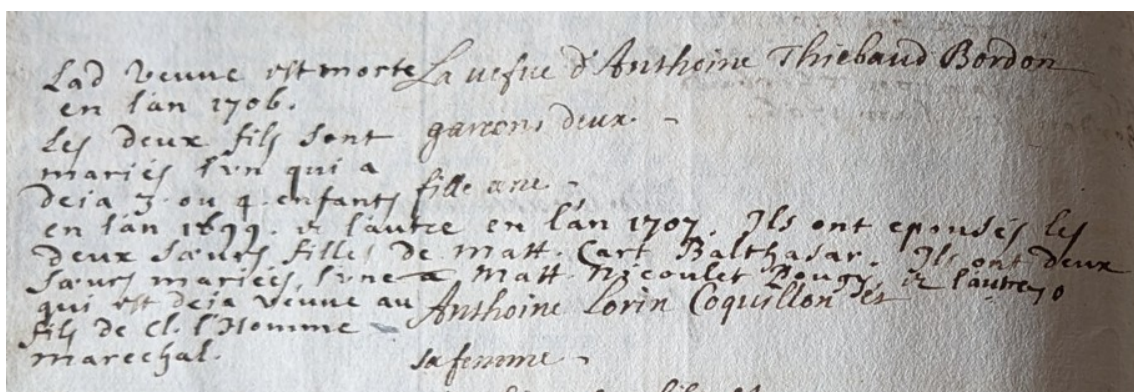 Lad veuve est morte
en l'an 1706.
Les deux fils sont
mariés l'vn qui a
deia 3 ou 4 enfants
en l'an 1699. & l'autre en l'an 1707. Ils ont epousés les
deux sœurs filles de Matt. Cart Balthasar. Ils ont deux
sœurs mariées, l'vne a Matt. Nicoulet Bougy & l'autre
qui est deja veuve au
fils de Cl. l'Homme
marechal.
La vefue d'Anthoine Thiebaud Bordon
garcons deux.
fille une
Anthoine Lorin Coquillon dés
sa femme